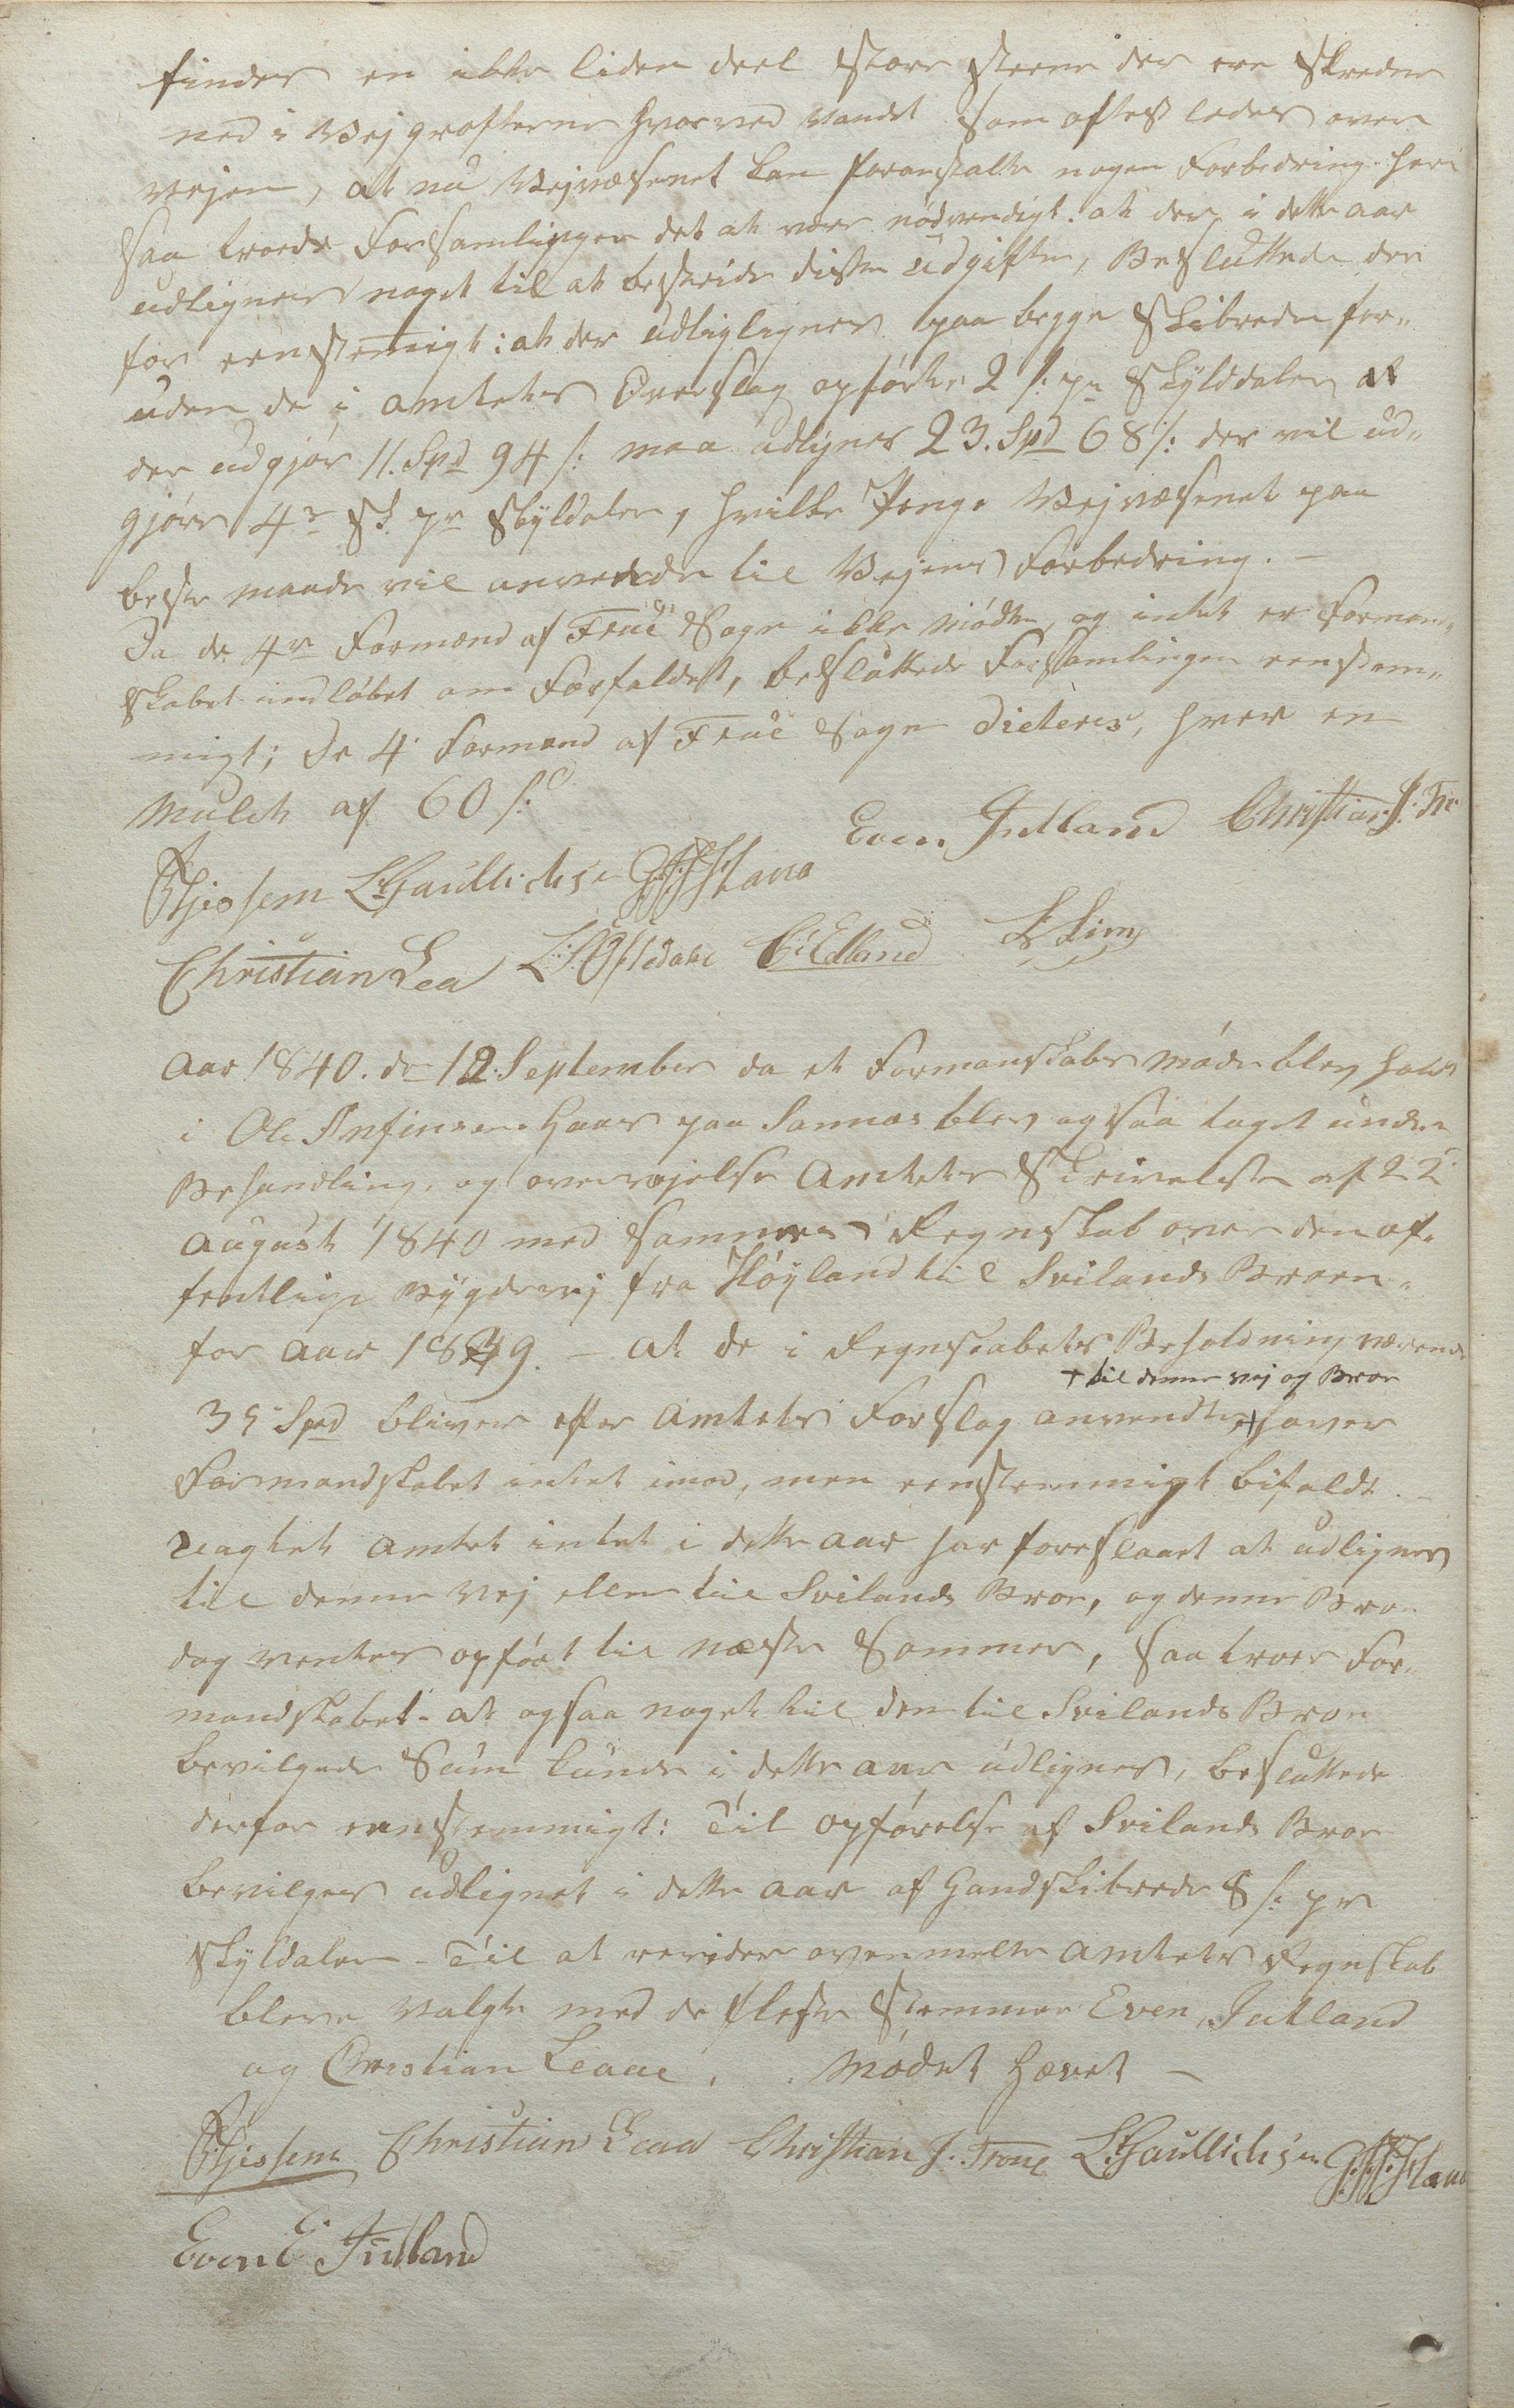 findes en ikke liden deel store steene der ere skredne
ned i Vejgrøfterne hvorved vandet som oftest ledes over
vejen, at nu Vejvæsenet kan foranstalte nogen Forbedring heri
saa troede Forsamlingen det at være nødvendigt at der i dette aar
udlignes noget til at bestride disse udgifter, Besluttede der
for eenstemigt: at der udligligner paa begge Skibreder for„
uden de i amtets Overslag opførte 2 s: pr Skylddaler at
der udgjør 11. Spd 94 s: maa udlignes 23. Spd 68 s: der vil ud„
gjøre 4r sk. pr Skyldaler, hvilke Penge Vejvæsenet paa
beste maade vil anvende til Vejens Forbedring. —
Da de 4re Formænd af Frue Sogn ikke mødte, og intet er Formand„
skabet indløbet om Forfaldet, besluttede Forsamlingen eenstem„
migt; De 4 Formænd af Frue Sogn dicteres, hver en
Mulct af 60 s:
Even Jutland Christian J.
L. Gaulichsen
Christian Lea C: Edland
Aar 1840. den 12. September da et Formanskabs møde blev holdt
i Ole Anfinsens Huus paa Sannæs blev og saa taget under
Behandling og overvejelse Amtets Skrivelse af 22
august 1840 med Sammes Regnskab over den of„
fentlige Bygdevej fra Høyland til Svilands Broen
for aar 1839. — At de i Regnskabets Beholdning værende
+ til denne vej og Broe
35 Spd bliver efter Amtets Forslag anvendte + haver
Formandskabet intet imod, men eenstemmigt bifaldt. —
Uagtet Amtet intet i dette aar har foreslaaet at udlignes
til denne Vej eller til Svilands Broe, og denne Broe
dog ventes opført til næste Sommer, saa troer For„
mandskabet at ogsaa noget til den til Svilands Broe
bevilgede Sum kunde i dette aar udlignes, besluttede
derfor eenstemmigt: Til opførelse af Svilands Broe
bevilges udlignet i dette aar af Gandskibrede 8 s: pr
Skyldaler — Til at revidere ovenmelte Amtets Regnskab
bleve valgte med de fleste Stemmer Even Jutland
og Christian Leaae. Mødet hævet —
Christian Leaa Christian J. Troue L. Gaulichsen
Even E. Jutland